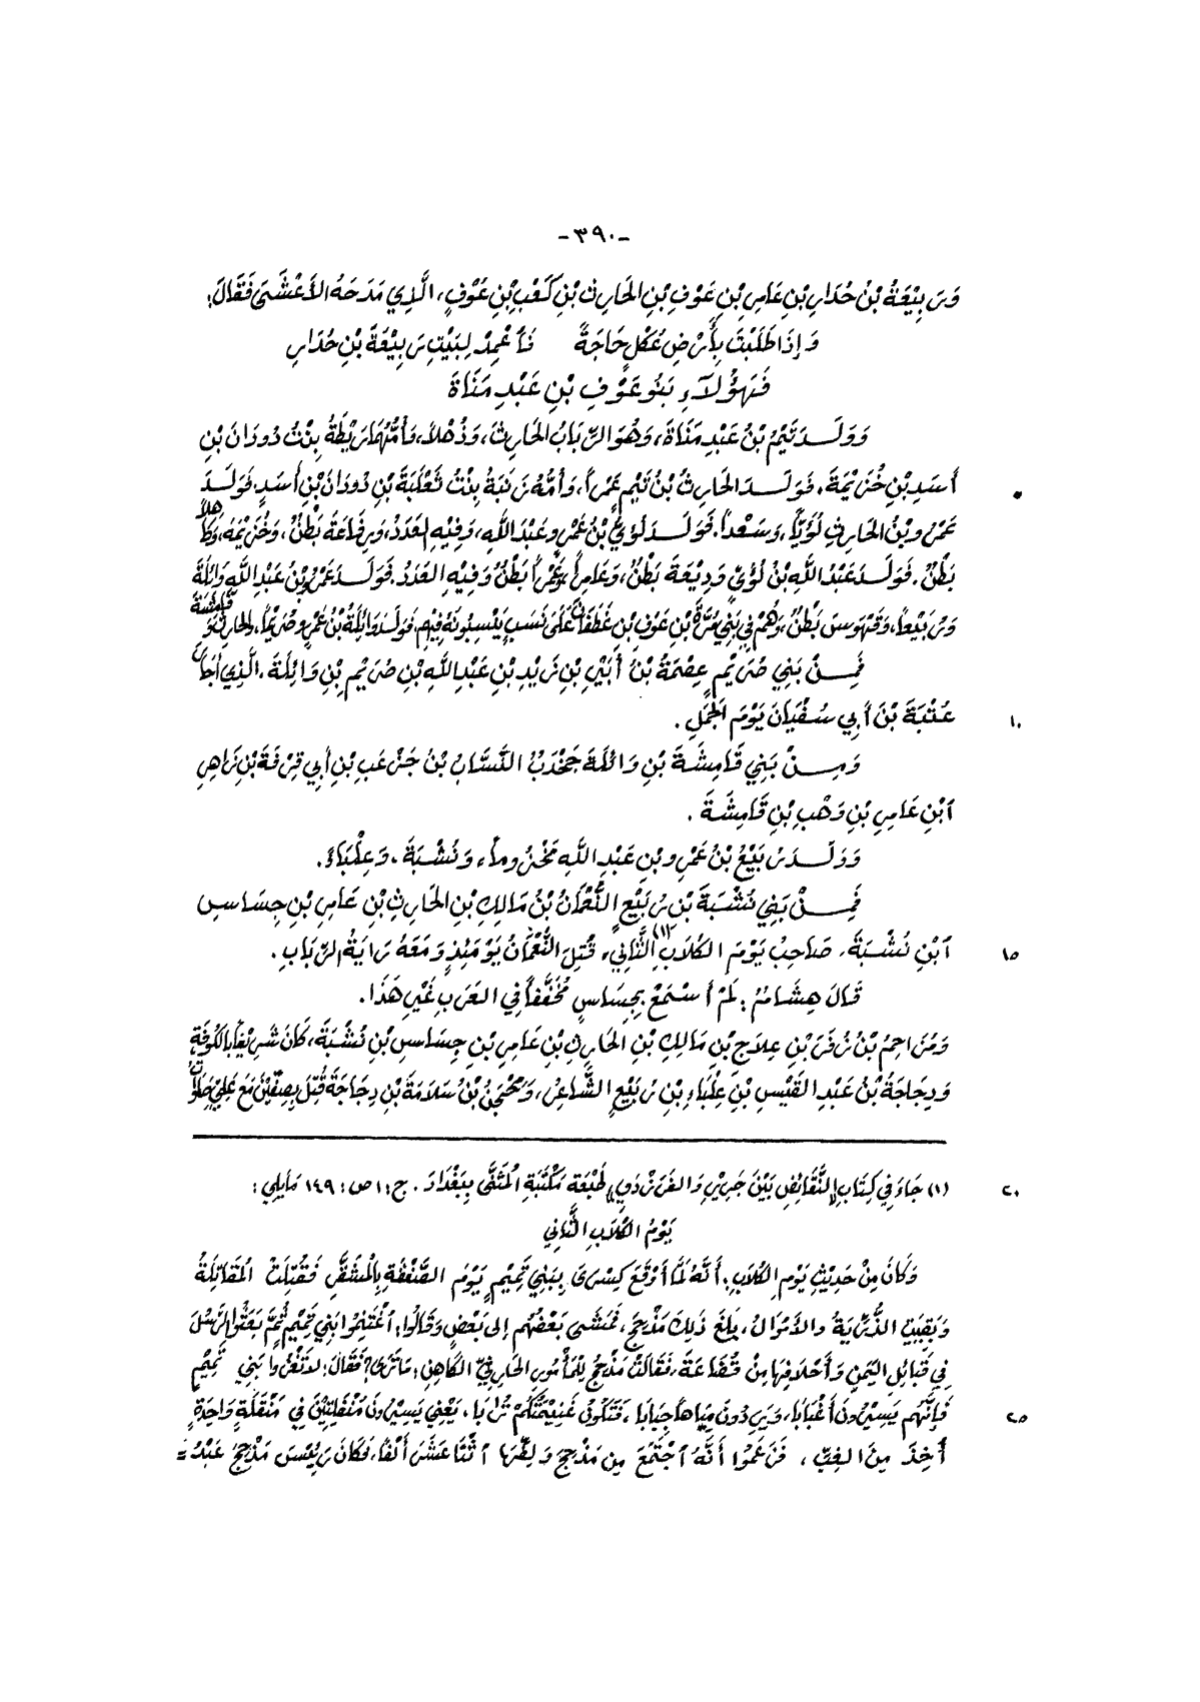 -٣٩٠-
وَرَبِيْعَةُ بْنُ حُذَارِ بْنِ عَامِرِ بْنِ عَوْفِ بْنِ الحَارِثِ بْنِ كَعْبِ بْنِ عَوْفٍ، الَّذِي مَدَحَهُ الأَعْشَى فَقَالَ:
وَإِذَا طَلَبْتَ بِأَرْضِ عُكْلٍ حَاجَةً فَاعْمِدْ لِبَيْتِ رَبِيْعَةَ بْنِ حُذَارِ
فَهَؤُلَاءِ بَنُو عَوْفِ بْنِ عَبْدِ مَنَاةَ
وَوَلَدَ تَيْمُ بْنُ عَبْدِ مَنَاةَ، وَهُوَ الرِّبَابُ الحَارِثَ، وَذُهْلاً، وَأُمُّهُمَا رَيْطَةُ بِنْتُ دُودَانَ بْنِ
أَسَدِ بْنِ خُزَيْمَةَ. فَوَلَدَ الحَارِثُ بْنُ تَيْمٍ عَمْراً، وَأُمُّهُ زَنَبَةُ بِنْتُ ثَعْلَبَةَ بْنِ دُودَانَ بْنِ أَسَدٍ. فَوَلَدَ
عَمْرُو بْنُ الحَارِثِ لُؤَيّاً، وَسَعْداً. فَوَلَدَ لُؤَيُّ بْنُ عَمْرٍو عَبْدَ اللهِ، وَفِيْهِ العَدَدُ، وَرِفَاعَةَ بَطْنٌ، وَخُزَيْمَةَ، وَكَاهِلاً
بَطْنٌ. فَوَلَدَ عَبْدُ اللهِ بْنُ لُؤَيٍّ وَدِيْعَةَ بَطْنٌ، وَعَامِراً بَطْنٌ، وَعَمْراً بَطْنٌ وَفِيْهِ العَدَدُ. فَوَلَدَ عَمْرُو بْنُ عَبْدِ اللهِ وَائِلَةَ
وَرَبِيْعاً، وَقَهْوَسَ بَطْنٌ، وَهُمْ فِي بَنِي مُرَّةَ بْنِ عَوْفِ بْنِ غَطَفَانَ عَلَى نَسَبٍ يَنْسِبُونَهُ فِيْهِمْ. فَوَلَدَ وَائِلَةُ بْنُ عَمْرٍو صُرَيْماً، والحَارِثَ، وَقَامِشَةَ
فَمِنْ بَنِي صُرَيْمٍ عِصْمَةُ بْنُ أُبَيْرِ بْنِ زَيْدِ بْنِ عَبْدِ اللهِ بْنِ صُرَيْمِ بْنِ وَائِلَةَ، الَّذِي أَجَارَ
عُتْبَةَ بْنَ أَبِي سُفْيَانَ يَوْمَ الجَمَلِ. ١٠
وَمِنْ بَنِي قَامِشَةَ بْنِ وَائِلَةَ جَخْدَبُ النَّسَّابُ بْنُ جَرْعَبِ بْنِ أَبِي قِرْفَةَ بْنِ زَاهِرِ
ابْنِ عَامِرِ بْنِ وَهْبِ بْنِ قَامِشَةَ.
وَوَلَدَ رَبِيْعُ بْنُ عَمْرِو بْنِ عَبْدِ اللهِ مَخْزُوماً، وَنُشْبَةَ، وَعِلْبَاءَ.
فَمِنْ بَنِي نُشْبَةَ بْنِ رَبِيْعٍ النُّعْمَانُ بْنُ مَالِكِ بْنِ الحَارِثِ بْنِ عَامِرِ بْنِ جِسَاسِ
ابْنِ نُشْبَةَ، صَاحِبُ يَوْمَ الكُلَابِ الثَّانِي(١)، قُتِلَ النُّعْمَانُ يَوْمَئِذٍ وَمَعَهُ رَايَةُ الرِّبَابِ. ١٥
قَالَ هِشَامٌ: لَمْ أَسْمَعْ بِجِسَاسٍ مُخَفَّفاً فِي العَرَبِ غَيْرِ هَذَا.
وَمُزَاحِمُ بْنُ زُفَرَ بْنِ عِلَاجِ بْنِ مَالِكِ بْنِ الحَارِثِ بْنِ عَامِرِ بْنِ جِسَاسِ بْنِ نُشْبَةَ، كَانَ شَرِيْفاً بِالكُوفَةِ
وَدِجَاجَةُ بْنُ عَبْدِ القَيْسِ بْنِ عِلْبَاءِ بْنِ رَبِيْعٍ الشَّاعِرُ، وَمُحْجَنُ بْنُ سَلَامَةَ بْنِ دِجَاجَةَ قُتِلَ بِصِفِّيْنَ مَعَ عَلِيٍّ
(١) جَاءَ فِي كِتَابِ النَّقَائِضِ بَيْنَ جَرِيْرٍ وَالفَرَزْدَقِ، طَبْعَة مَكْتَبَةِ المُثَنَّى بِبَغْدَادَ. ج: ١ ص: ١٤٩ مَا يَلِي: ٢٠
يَوْمُ الكُلَابِ الثَّانِي
وَكَانَ مِنْ حَدِيْثِ يَوْمِ الكُلَابِ: أَنَّهُ لَمَّا أَوْقَعَ كِسْرَى بِبَنِي تَمِيْمٍ يَوْمَ الصَّفْقَةِ بِالمُشَقَّرِ فَقُتِلَتْ المُقَاتِلَةُ
وَبَقِيَتِ الذُّرِّيَةُ والأَمْوَالُ، بَلَغَ ذَلِكَ مَذْحِجَ، فَمَشَى بَعْضُهُم إِلَى بَعْضٍ وَقَالُوا: اغْتَنِمُوا بَنِي تَمِيْمٍ ثُمَّ بَعَثُوا الرُّسُلَ
فِي قَبَائِلِ اليَمَنِ وَأَحْلَافِهَا مِنْ قُضَاعَةَ، فَقَالَتْ مَذْحِجُ لِلْمَأْمُورِ الحَارِثِيِّ الكَاهِنِ: مَا تَرَى؟ فَقَالَ: لَا تَغْزُوا بَنِي تَمِيْمٍ
فَإِنَّهُم يَسِيْرُونَ أَغْبَابَا، وَيَرِدُونَ مِيَاهاً جِبَابَا، فَتَكُونُ غَنِيْمَتُكُمْ تُرَابَا، يَعْنِي يَسِيْرُونَ مَنْقَلَتَيْنِ فِي مَنْقَلَةٍ وَاحِدَةٍ ٢٥
أُخِذَ مِنَ الغِبِّ، فَزَعَمُوا أَنَّهُ اجْتَمَعَ مِن مَذْحِجَ وَلِفِّهَا اثْنَا عَشَرَ أَلْفاً، فَكَانَ رَئِيْسَ مَذْحِجَ عَبْدُ =